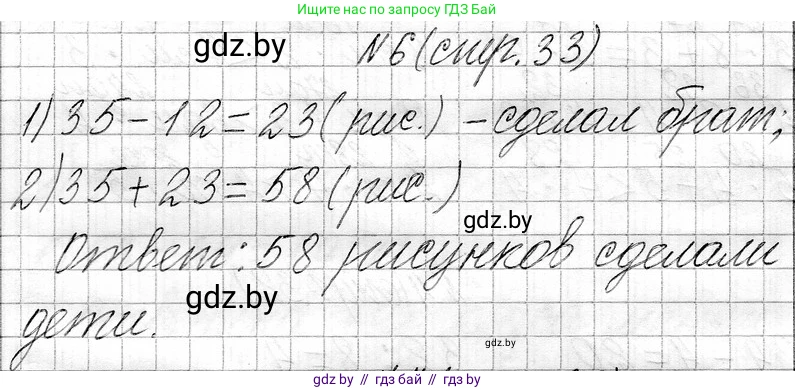 Ищите нас по запросу ГДЗ Бай
gdz.by
№6 (стр. 33)
1) 35 - 12 = 23 (рис.) - сделал брат;
2) 35 + 23 = 58 (рис.)
gdz.by
Ответ: 58 рисунков сделали
gdz.by
дети.
gdz.by
gdz.by // гдз бай // gdz.by